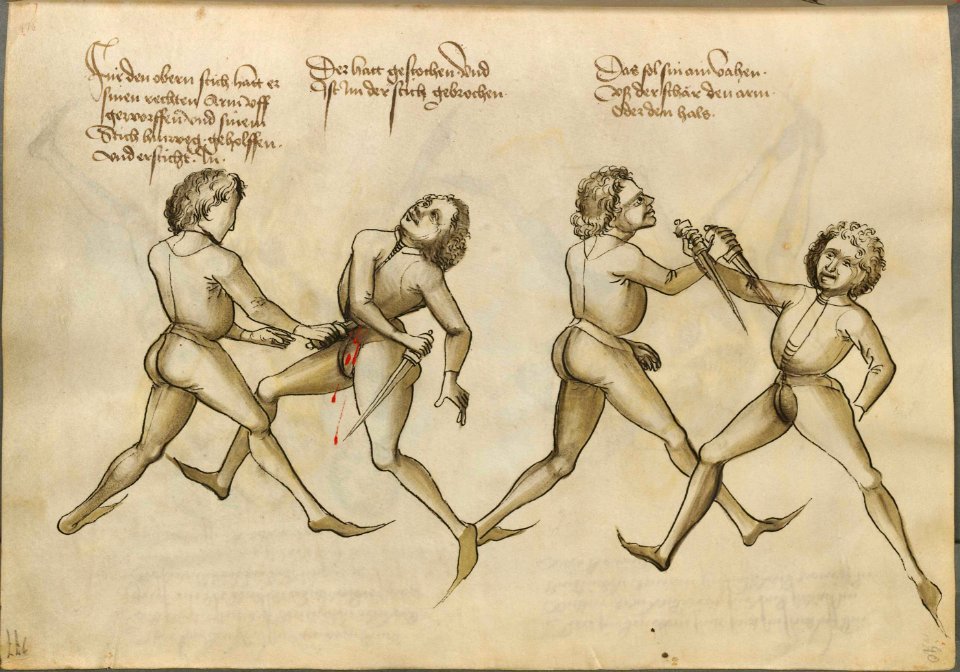 Für den obern stich hatt er
sinen rechten Arm uff
geworffen und sinem
Stich hinweg geholffen.
und ersticht In.
Der hatt gestochen und
ist Im der stich gebrochen.
Das sol sin ain
uß der schär den arm
Oder den hals.